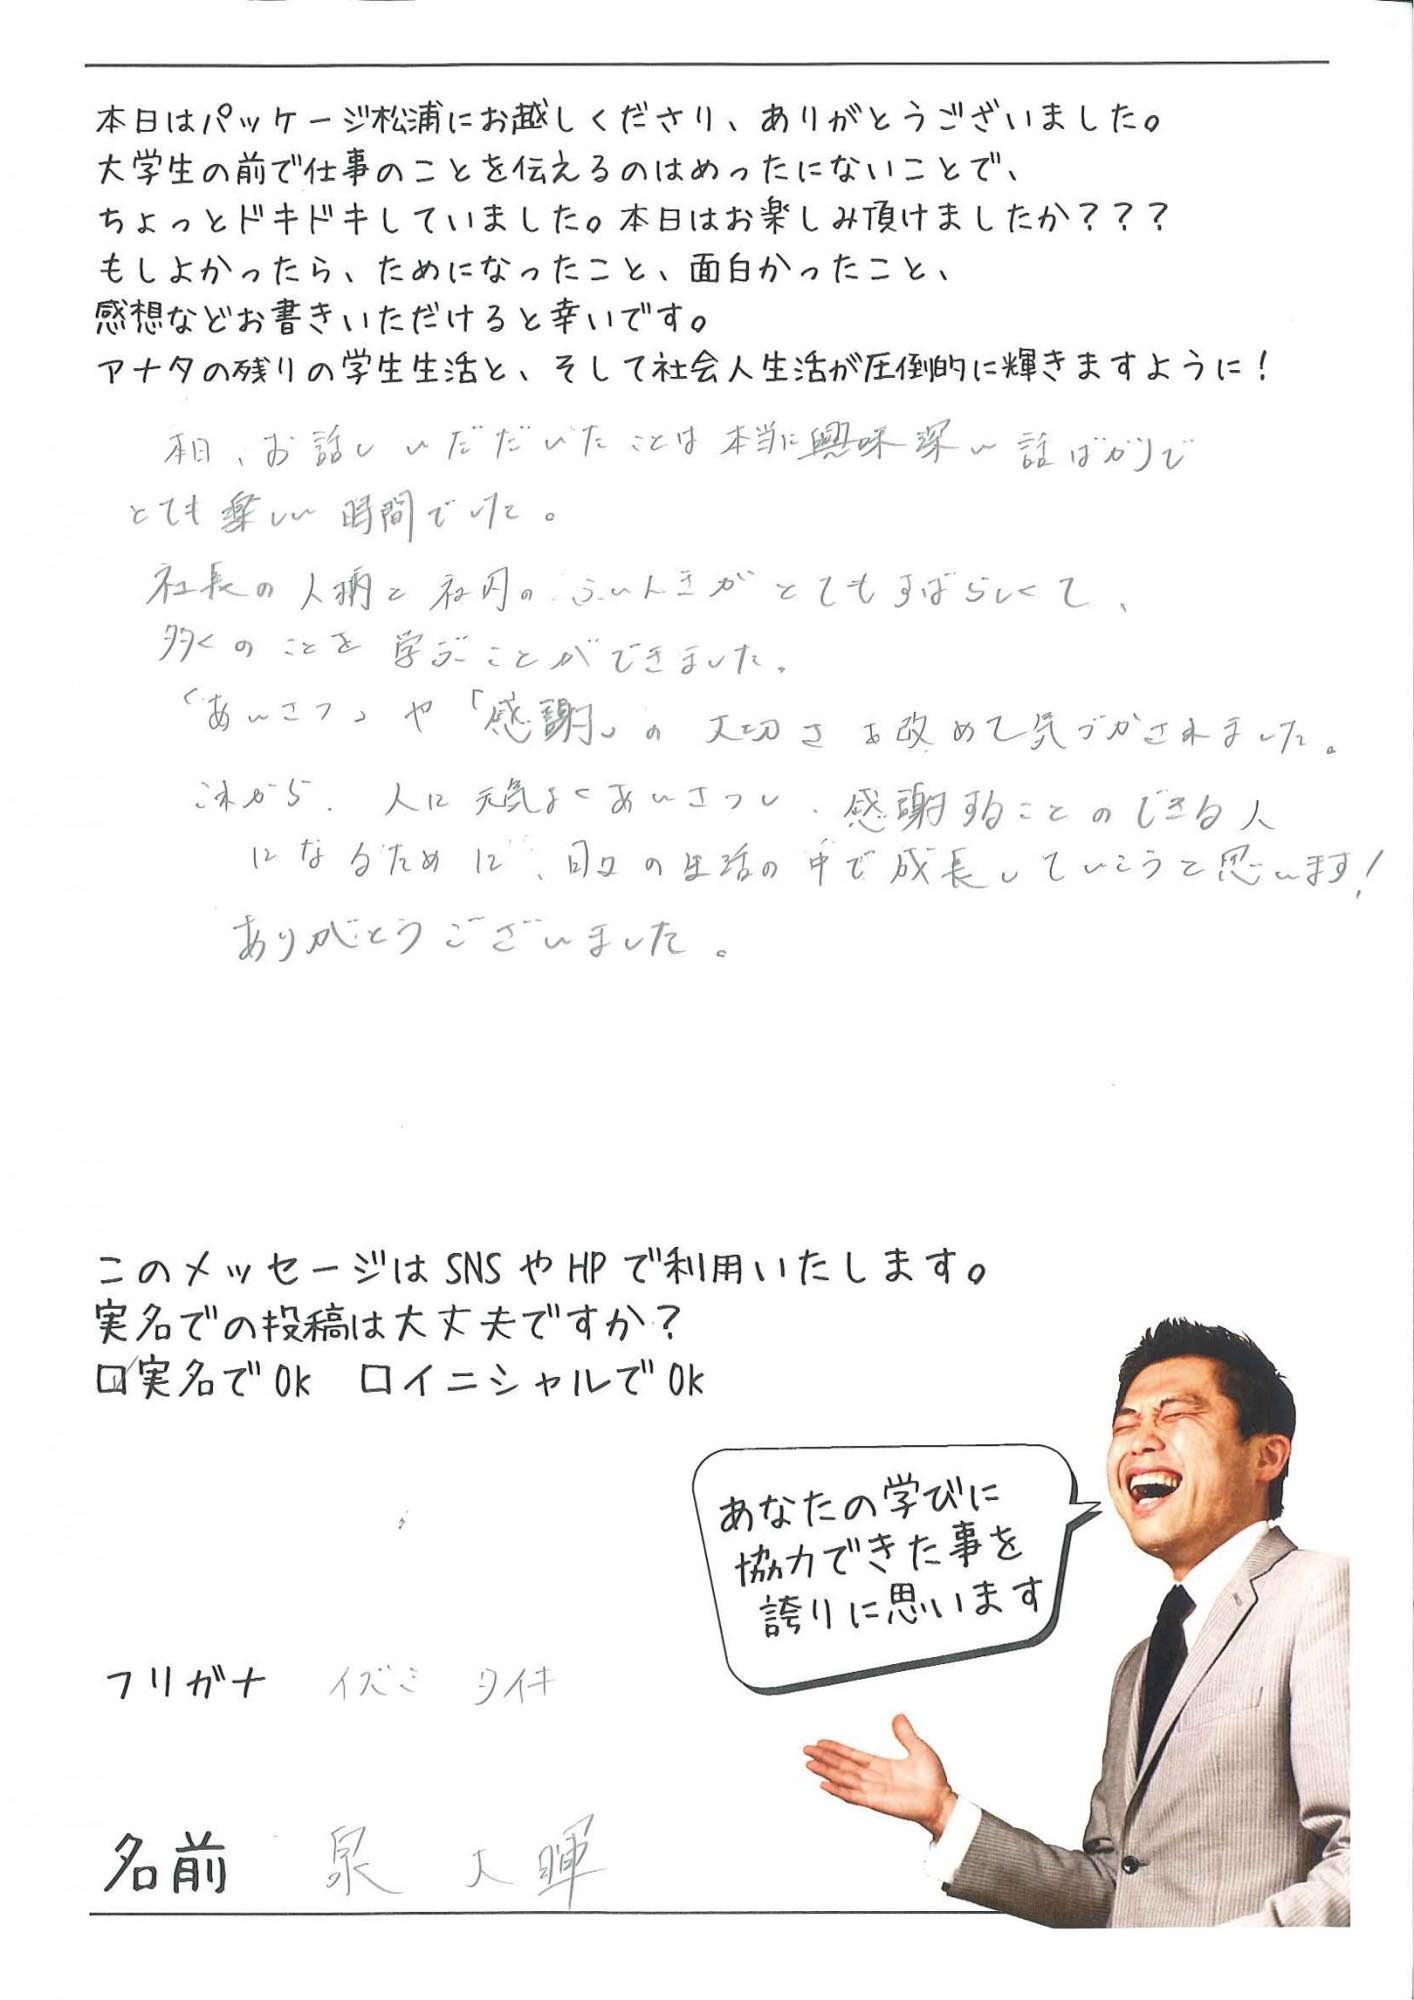 本日はパッケージ松浦にお越しくださり、ありがとうございました。
大学生の前で仕事のことを伝えるのはめったにないことで、
ちょっとドキドキしていました。本日はお楽しみ頂けましたか???
もしよかったら、ためになったこと、面白かったこと、
感想などお書きいただけると幸いです。
アナタの残りの学生生活と、そして社会人生活が圧倒的に輝きますように!
本日、お話しいただだいたことは本当に興味深い話ばかりで
とても楽しい時間でした。
社長の人柄と社内のふいんきがとてもすばらしくて、
多くのことを学ぶことができました。
「あいさつ」や「感謝」の大切さを改めて気づかされました。
これから、人に元気よくあいさつし、感謝することのできる人
になるために、日々の生活の中で成長していこうと思います!
ありがとうございました。
このメッセージはSNSやHPで利用いたします。
実名での投稿は大丈夫ですか?
☑実名でOk □イニシャルでOk
あなたの学びに
協力できた事を
誇りに思います
フリガナ イズミ タイキ
名前 泉 大暉